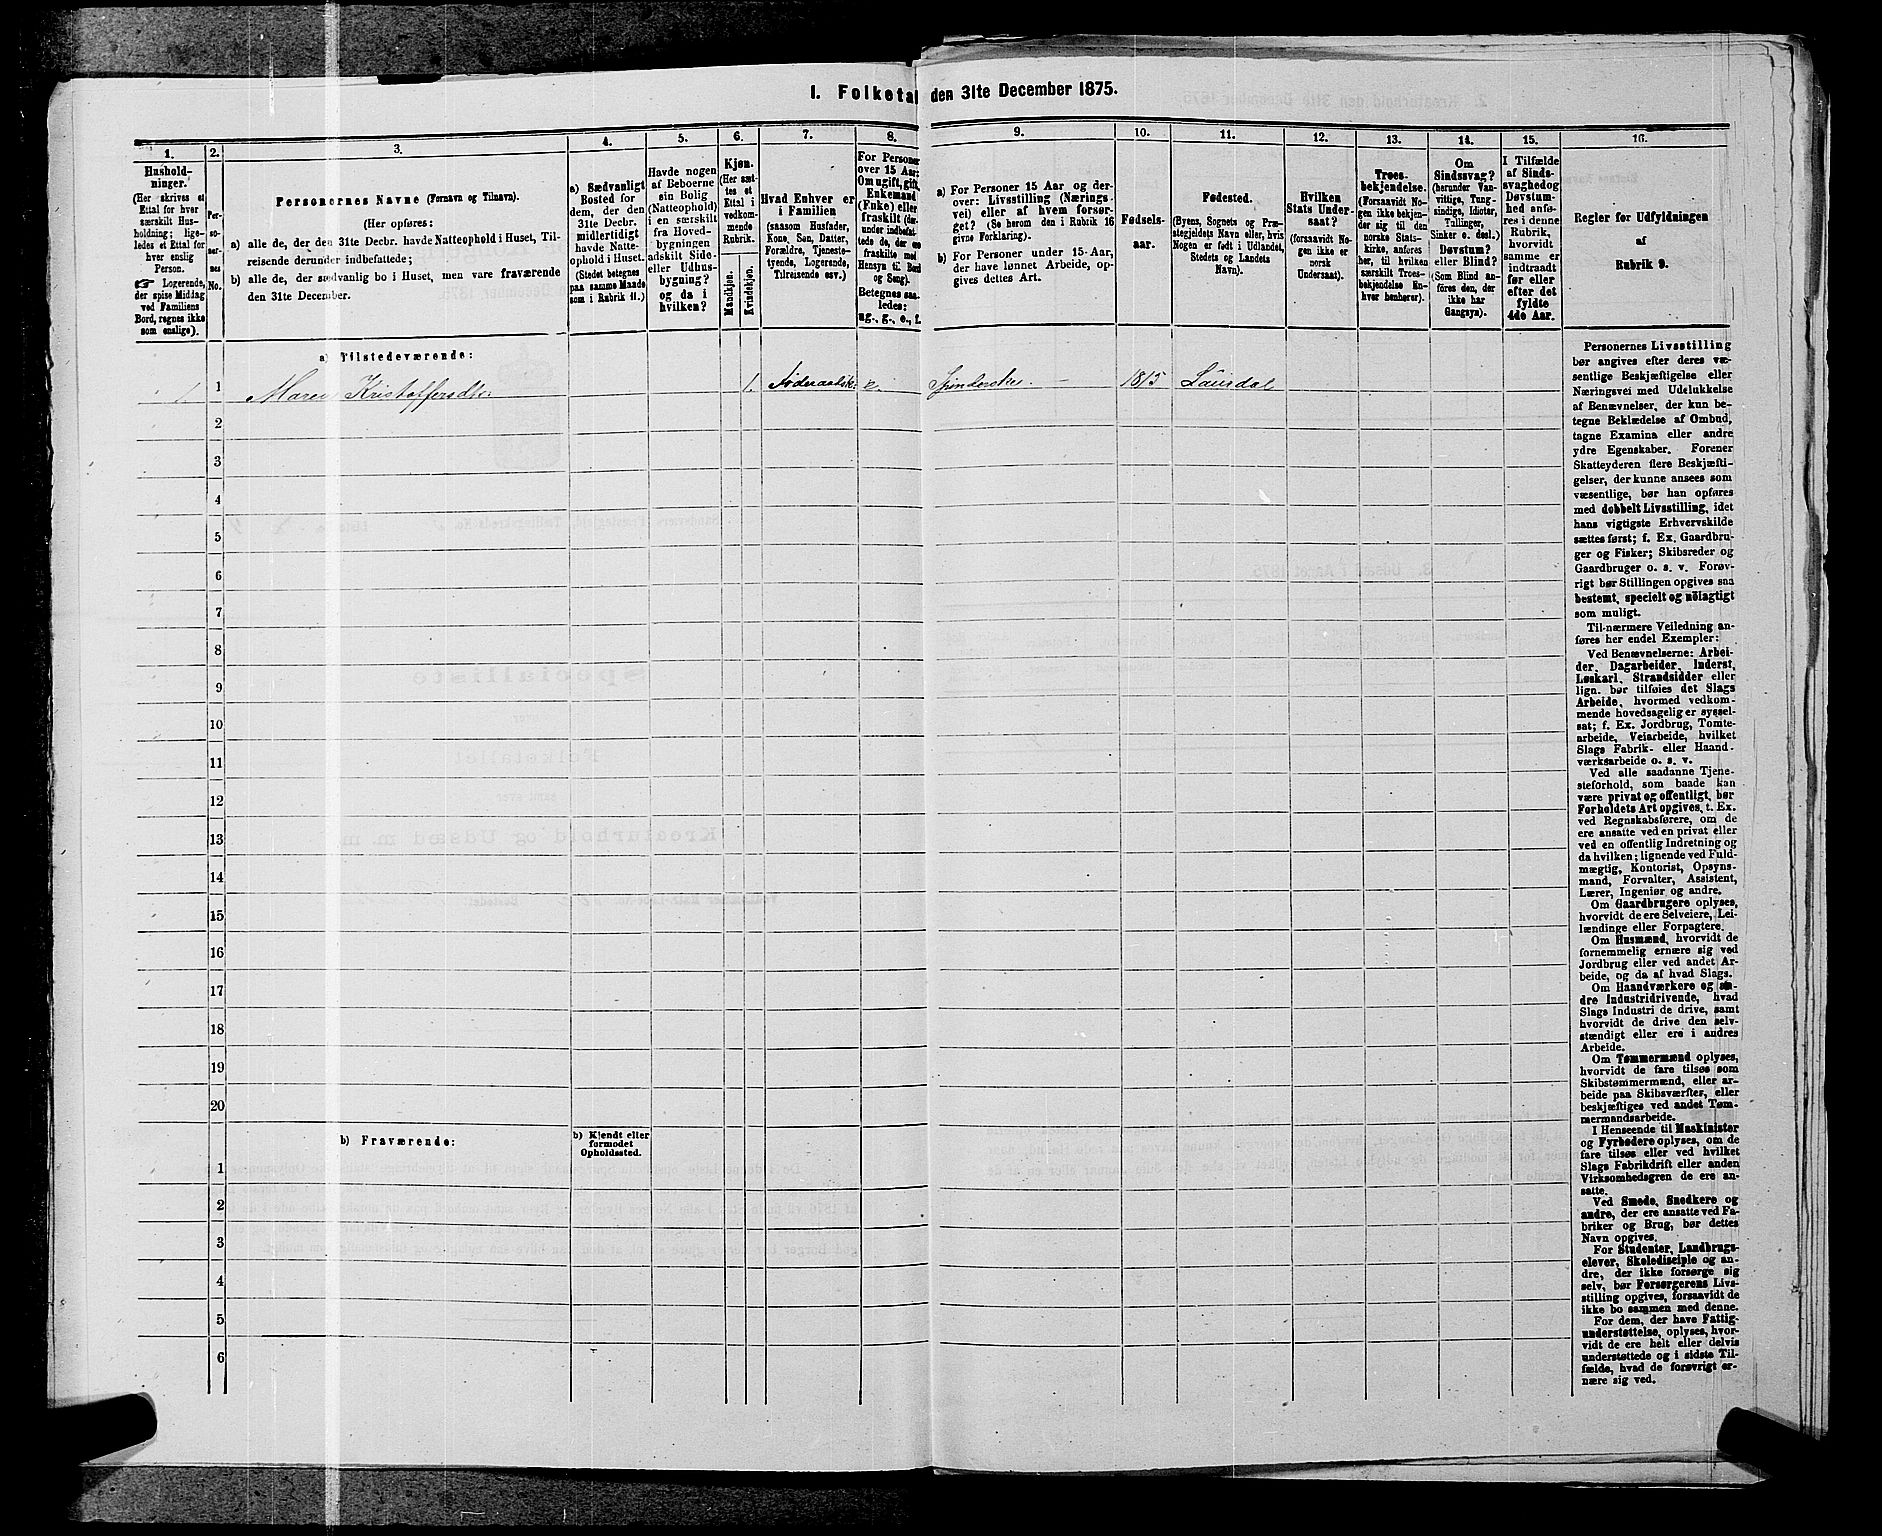 I. Folketal den 31te December 1875.
1.
Hushold-
ninger.
(Her skrives et
Ettal for hver
særskilt Hus-
holdning; lige-
ledes et Ettal for
hver enslig
Person.
☞ Logerende,
der spise Middag
ved Familiens
Bord, regnes ikke
som enslige).
2.
Per-
so-
ner-
nes
No.
3.
Personernes Navne (Fornavn og Tilnavn).
(Her opføres:
a) alle de, der den 31te Decbr. havde Natteophold i Huset, Til-
reisende derunder indbefattede;
b) alle de, der sædvanlig bo i Huset, men vare fraværende
den 31te December.
4.
a) Sædvanligt
Bosted for
dem, der den
31te Decbr.
midlertidigt
havde Natte-
ophold i Huset.
(Stedet betegnes
paa samme Maade
som i Rubrik 11.)
5.
Havde nogen
af Beboerne
sin Bolig
(Natteophold)
i en særskilt
fra Hoved-
bygningen
adskilt Side-
eller Udhus-
bygning?
og da i
hvilken?
6.
Kjøn.
(Her sæt-
tes et
Ettal i
vedkom-
mende
Rubrik.
Mandkjøn.
Kvindekjøn.
7.
Hvad Enhver er
i Familien
(saasom Husfader,
Kone, Søn, Datter,
Forældre, Tjeneste-
tyende, Logerende,
Tilreisende osv.)
8.
For Personer
over 15 Aar:
Om ugift, gift,
Enkemand
(Enke) eller
fraskilt (der-
under indbefat-
tede de, der ere
fraskilte med
Hensyn til Bord
og Seng).
Betegnes saa-
ledes:
ug., g., e., f.
9.
a) For Personer 15 Aar og der-
over: Livsstilling (Nærings-
vei) eller af hvem forsør-
get? (Se herom den i Rubrik 16
givne Forklaring).
b) For Personer under 15-Aar,
der have lønnet Arbeide, op-
gives dettes Art.
10.
Fødsels-
aar.
11.
Fødested.
(Byens, Sognets og Præ-
stegjeldets Navn eller, hvis
Nogen er født i Udlandet,
Stedets og Landets
Navn).
12.
Hvilken
Stats Under-
saat?
(forsaavidt No-
gen ikke er
norsk
Undersaat).
13.
Troes-
bekjendelse.
(Forsaavidt No-
gen ikke bekjen-
der sig til den
norske Stats-
kirke, anføres
her, til hvilken
særskilt Troes-
bekjendelse En-
hver henhører).
14.
Om
Sindssvag?
(herunder Van-
vittige, Tung-
sindige, Idioter,
Tullinger,
Sinker o. desl.)
Døvstum?
eller Blind?
(Som Blind an-
føres den, der
ikke har
Gangsyn).
15.
I Tilfælde
af Sinds-
svaghed og
Døvstum-
hed anfø-
res i denne
Rubrik,
hvorvidt
samme er
indtraadt
før eller
efter det
fyldte
4de Aar.
16.
Regler for Udfyldningen
af
Rubrik 9.
a) Tilstedeværende:
1 1 Maren Kristoffersdtr. 1. Føderaadsk: e. Spinderske. — 1815 Laurdal
2
3
4
5
6
7
8
9
10
11
12
13
14
15
16
17
18
19
20
b) Fraværende:
b) Kjendt eller
formodet
Opholdssted.
1
2
3
4
5
6
Personernes Livsstilling
bør angives efter deres væ-
sentlige Beskjæftigelse eller
Næringsvei med Udelukkelse
af Benævnelser, der kun be-
tegne Beklædelse af Ombud,
tagne Examina eller andre
ydre Egenskaber. Forener
Skatteyderen flere Beskjæfti-
gelser, der kunne ansees som
væsentlige, bør han opføres
med dobbelt Livsstilling, idet
hans vigtigste Erhvervskilde
sættes først; f. Ex. Gaardbru-
ger og Fisker; Skibsreder og
Gaardbruger o. s. v. Forøv-
rigt bør Stillingen opgives saa
bestemt, specielt og nöiagtigt
som muligt.
Til nærmere Veiledning an-
føres her endel Exempler:
Ved Benævnelserne: Arbei-
der, Dagarbeider, Inderst,
Løskarl, Strandsidder eller
lign. bør tilføies det Slags
Arbeide, hvormed vedkom-
mende hovedsagelig er syssel-
sat; f. Ex. Jordbrug, Tomte-
arbeide, Veiarbeide, hvilket
Slags Fabrik- eller Haand-
værksarbeide o. s. v.
Ved alle saadanne Tjene-
steforhold, som baade kan
være privat og offentligt, bør
Forholdets Art opgives, t. Ex.
ved Regnskabsførere, om de
ere ansatte ved en privat eller
ved en offentlig Indretning og
da hvilken; lignende ved Fuld-
mægtig, Kontorist, Opsyns-
mand, Forvalter, Assistent,
Lærer, Ingeniør og andre.
Om Gaardbrugere oplyses,
hvorvidt de ere Selveiere, Lei-
lændinge eller Forpagtere.
Om Husmænd, hvorvidt de
fornemmelig ernære sig ved
Jordbrug eller ved andet Ar-
beide, og da af hvad Slags.
Om Haandværkere og an-
dre Industridrivende, hvad
Slags Industri de drive, samt
hvorvidt de drive den selv-
stændigt eller ere i andres
Arbeide.
Om Tømmermænd oplyses,
hvorvidt de fare tilsøs som
Skibstømmermænd, eller ar-
beide paa Skibsværfter, eller
beskjæftiges ved andet Tøm-
mermandsarbeide.
I Henseende til Maskinister
og Fyrbødere oplyses, om de
fare tilsøs eller ved hvilket
Slags Fabrikdrift eller anden
Virksomhedsgren de ere an-
satte.
Ved Smede, Snedkere og
andre, der ere ansatte ved Fa-
briker og Brug, bør dettes
Navn opgives.
For Studenter, Landbrugs-
elever, Skoledisciple og an-
dre, der ikke forsørge sig
selv, bør Forsørgerens Livs-
stilling opgives, forsaavidt de
ikke bo sammen med denne.
For dem, der have Fattig-
understøttelse, oplyses, hvor-
vidt de ere helt eller delvis
understøttede og i sidste Til-
fælde, hvad de forøvrigt er-
nære sig ved.